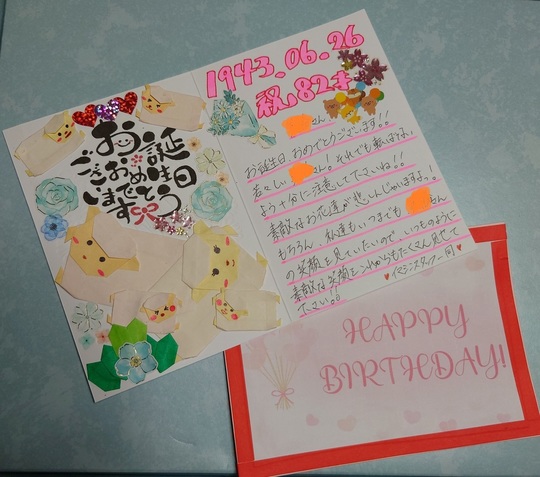 お誕生日
おめでとう
ございます
1943.06.26
祝82才
さん
お誕生日おめでとうございます!!
若々しい さん!それでも転ばない
よう十分に注意して下さいね!!
素敵なお花達が悲しんじゃいますよっ!
もちろん、私達もいつまでも さん
の笑顔を見ていたいので、いつものように
素敵な笑顔をこれからもたくさん見せて
下さい。
スタッフ一同
HAPPY
BIRTHDAY!